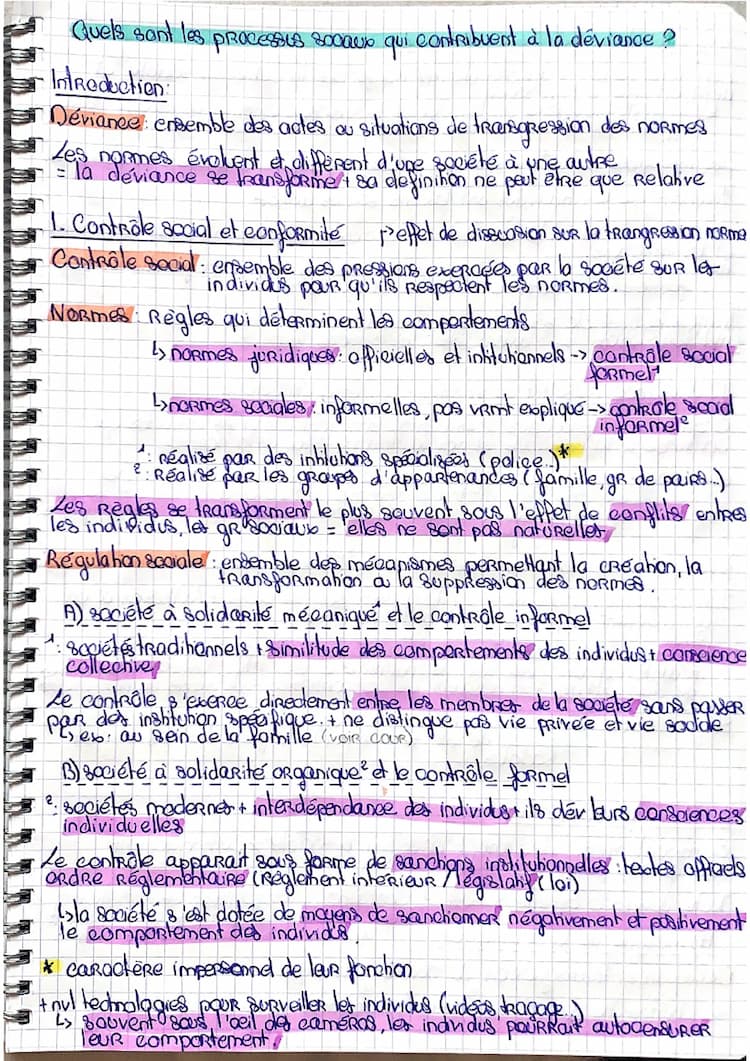 Quels sont les processus sociaux qui contribuent à la déviance ?
Introduction:
Déviance: ensemble des actes ou situations de transgression des normes
Les normes évoluent et diffèrent d'une société à une autre
= la déviance se transforme + sa definition ne peut être que relative
1. Contrôle social et conformité
effet de dissuasion sur la trangression norme
Contrôle social: ensemble des pressions exercées par la société sur les
individus pour qu'ils respectent les normes.
Normes: Règles qui déterminent les comportements
↳ normes juridiques: officielles et intitutionnels -> contrôle social
formel¹
↳ normes sociales: informelles, pas vrmt expliqué -> controle social
informel²
1: réalisé par des intitutions spécialisées (police..)*
2: Réalisé par les groupes d'appartenances (famille, gr de pairs..)
Les Règles se transforment le plus souvent sous l'effet de conflits entres
les individus, les gr sociaux = elles ne sont pas naturelles
Régulation sociale: ensemble des mécanismes permettant la création, la
transformation ou la suppression des normes.
A) société à solidarité mécanique¹ et le contrôle informel
1: sociétés traditionnels + similitude des comportements des individus + conscience
collective
Le contrôle s'exerce directement entre les membres de la société sans passer
par des institution spécifique. + ne distingue pas vie privée et vie sociale
↳ ex: au sein de la famille (voir cour)
B) société à solidarité organique² et le contrôle formel
2: sociétés modernes + interdépendance des individus + ils dév leurs consciences
individuelles
Le contrôle apparait sous forme de sanctions institutionnelles: textes officiels
ordre réglementaire (Réglement intérieur / législatif (loi)
↳ la société s'est dotée de moyens de sanctionner négativement et positivement
le comportement des individus.
* caractère impersonnel de leur fonction
+ nvl technologies pour surveiller les individus (vidéos, traçage..)
↳ souvent sous l'œil des caméras, les individus pourrait autocensurer
leur comportement.